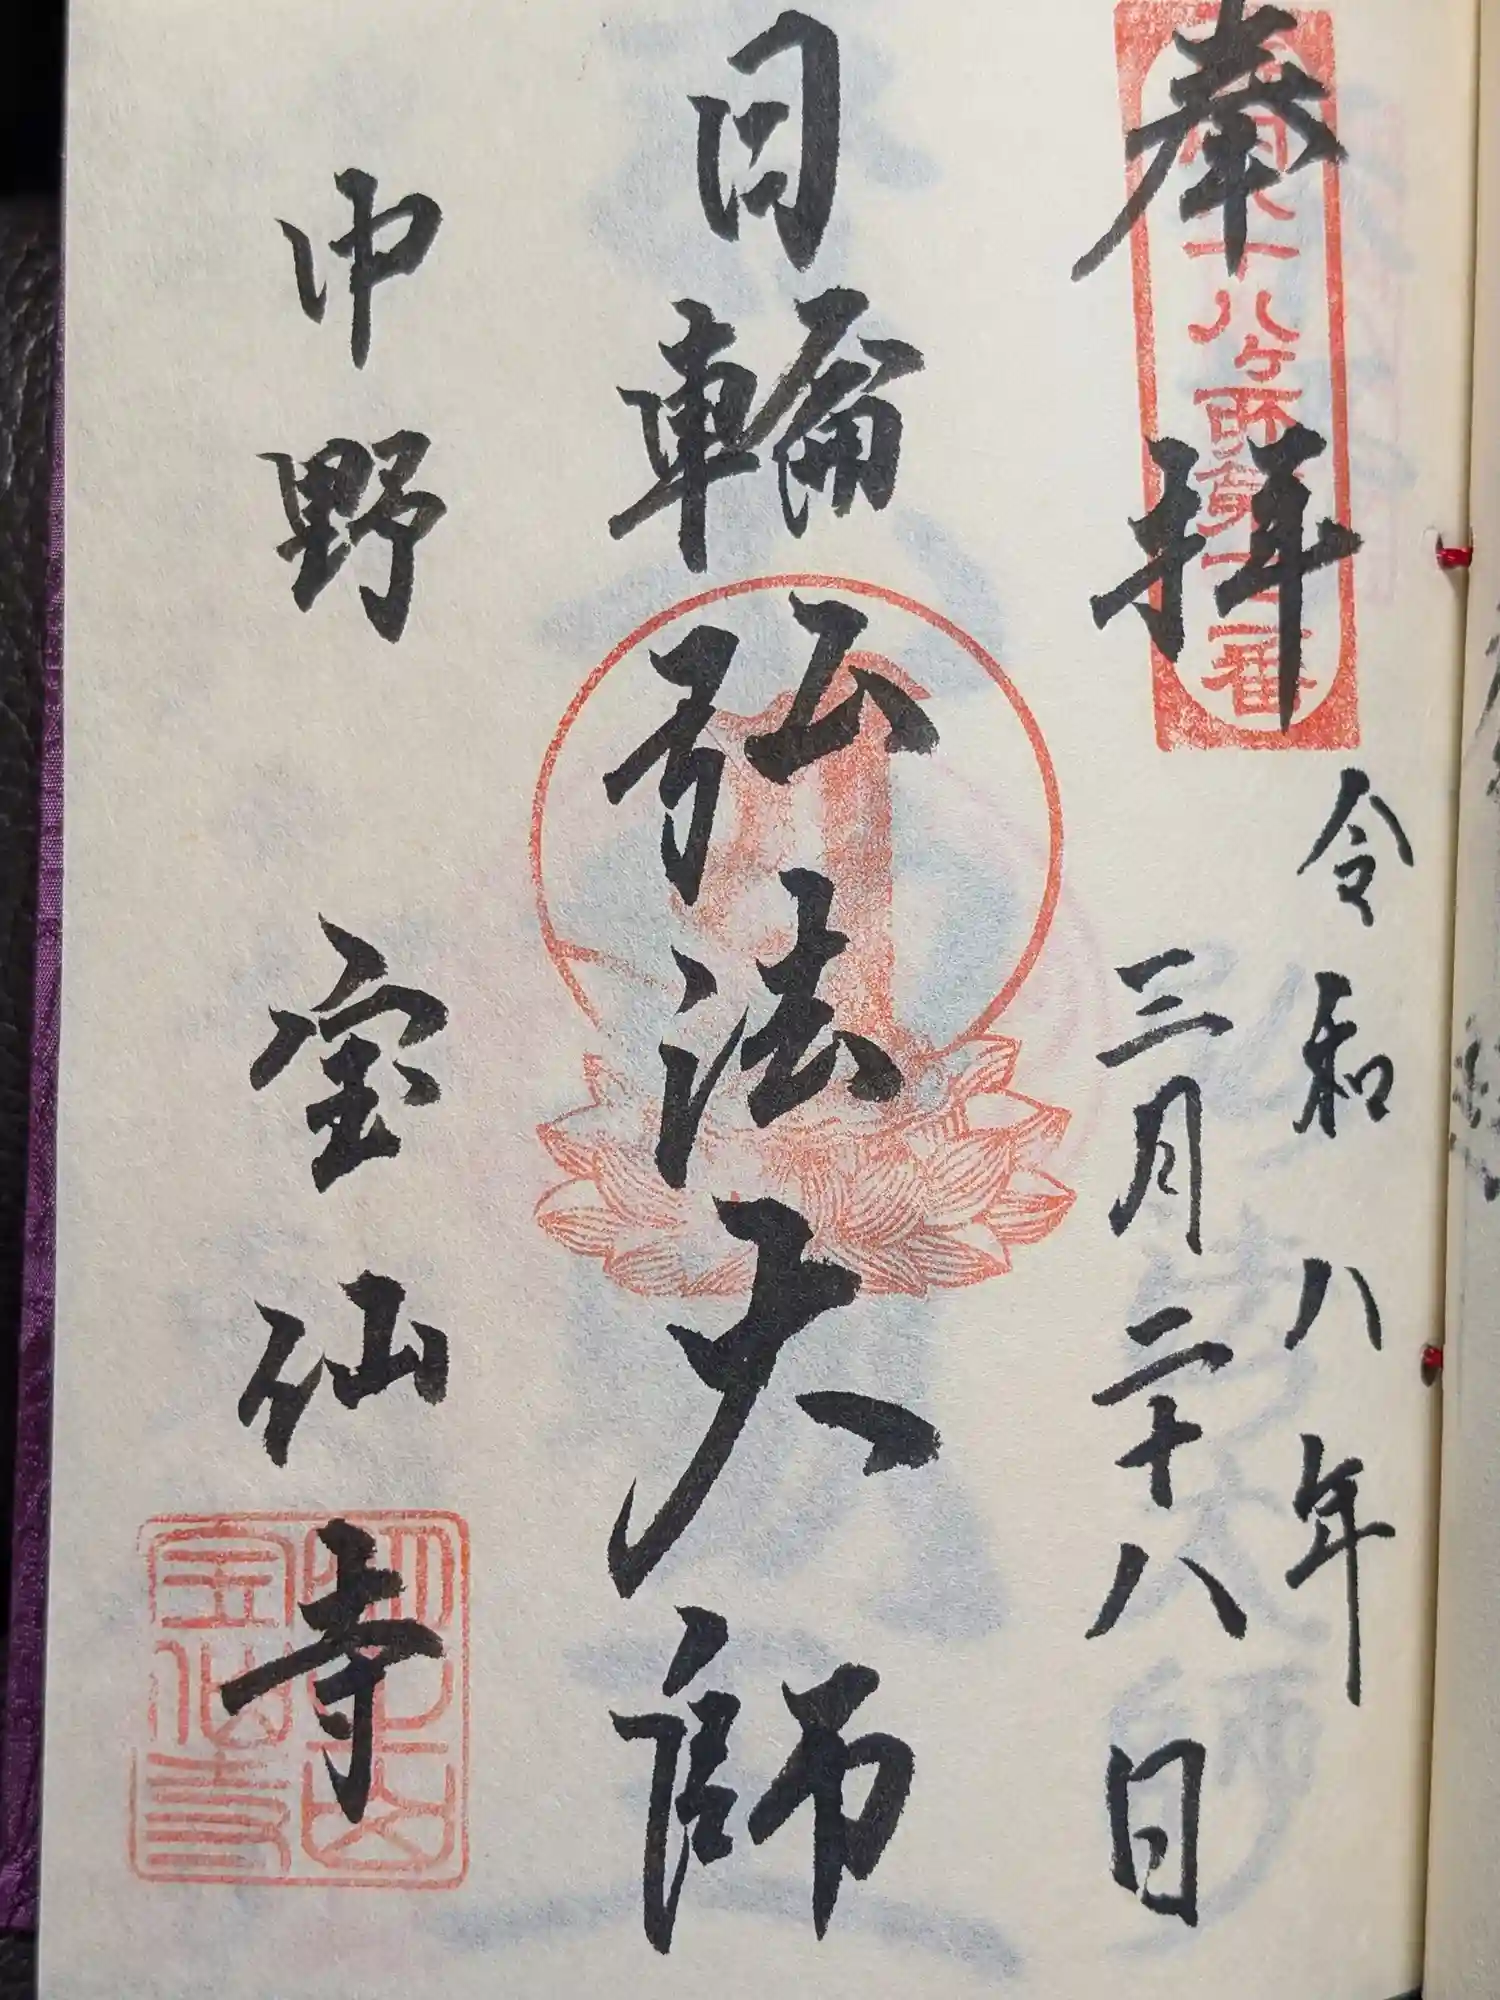 奉拝
令和八年
三月二十八日
日輪弘法大師
中野 宝仙寺
十八ヶ所第
番